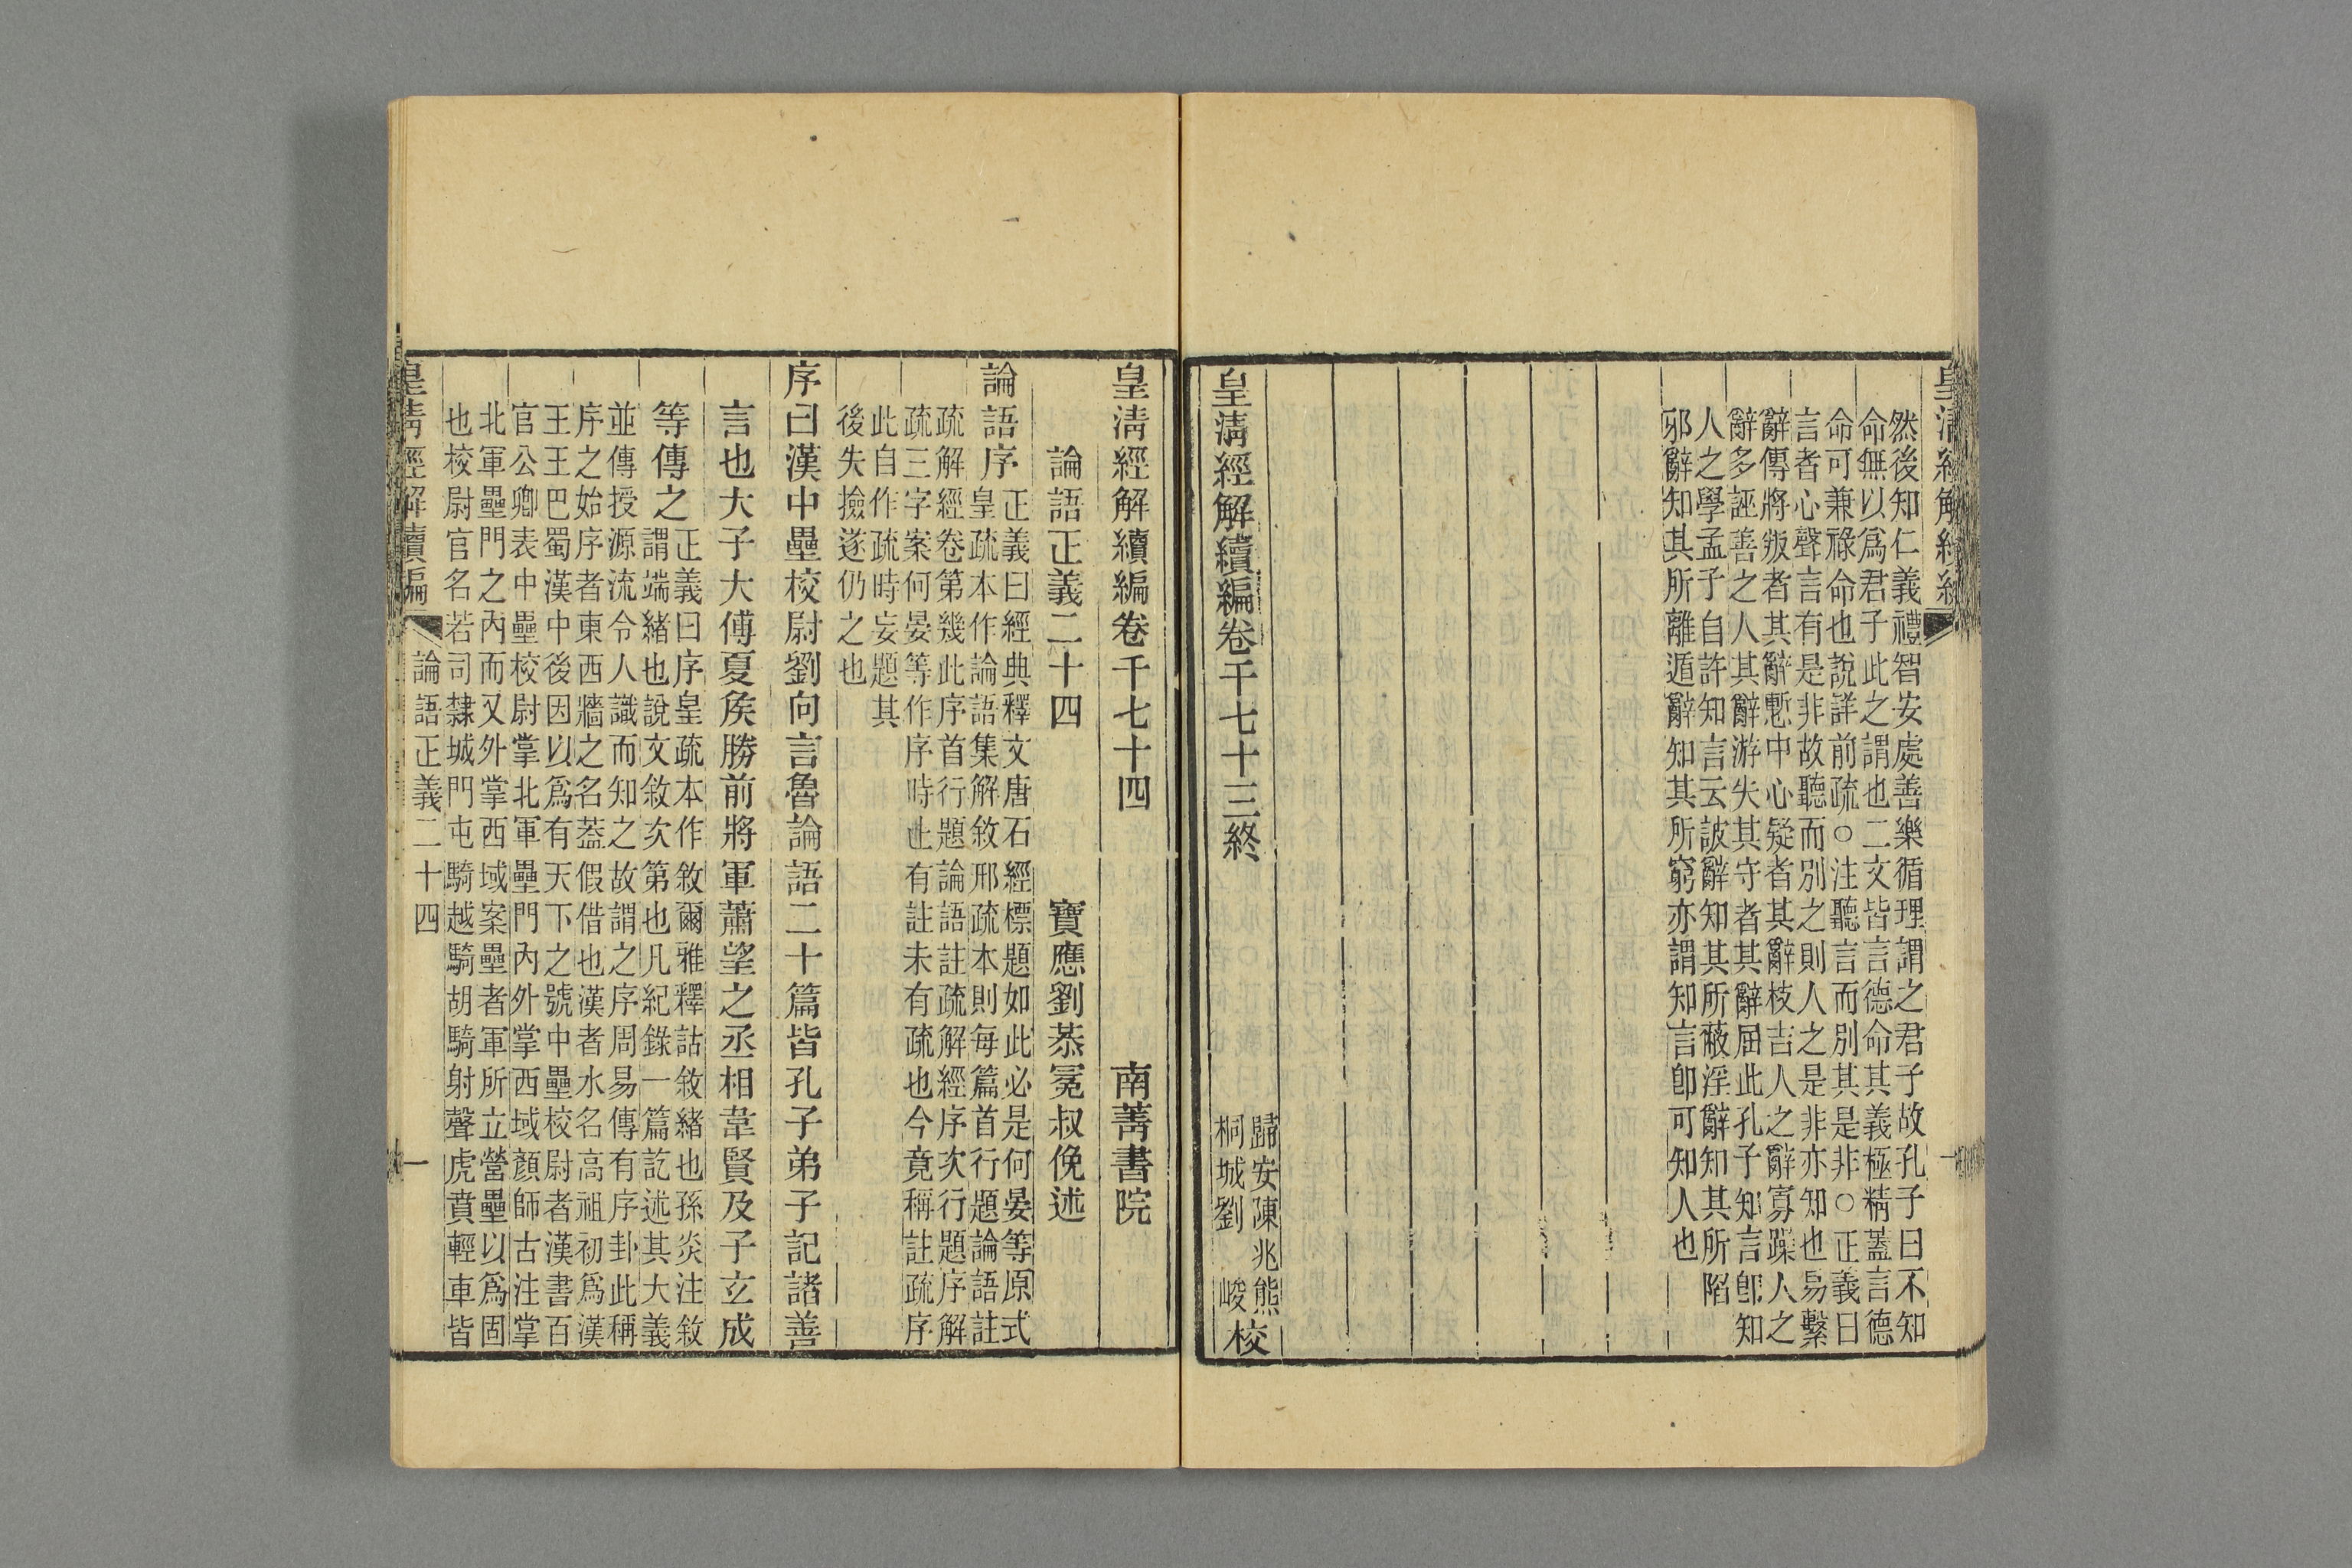 然後知仁義禮智安處善樂循理謂之君子故孔子曰不知
命無以爲君子此之謂也二文皆言德命其義極精蓋言德
命可兼祿命也說詳前疏○注聽言而別其是非○正義曰
言者心聲言有是非故聽而別之則人之是非亦知也易繫
辭傳將叛者其辭慙中心疑者其辭枝吉人之辭寡躁人之
辭多誣善之人其辭游失其守者其辭屈此孔子知言卽知
人之學孟子自許知言云詖辭知其所蔽淫辭知其所陷
邪辭知其所離遁辭知其所窮亦謂知言卽可知人也
皇清經解續編卷千七十三終
歸安陳兆熊
桐城劉 峻校
皇清經解續編卷千七十四 南菁書院
論語正義二十四 寶應劉恭冕叔俛述
論語序
正義曰經典釋文唐石經標題如此必是何晏等原式
皇疏本作論語集解敘邢疏本則每篇首行題論語註
疏解經卷第幾此序首行題論語註疏解經序次行題序解
疏三字案何晏等作序時止有註未有疏也今竟稱註疏序
此自作疏時妄題其
後失撿遂仍之也
序曰漢中壘校尉劉向言魯論語二十篇皆孔子弟子記諸善
言也大子大傅夏矦勝前將軍蕭望之丞相韋賢及子玄成
等傳之
正義曰序皇疏本作敘爾雅釋詁敘緒也孫炎注敘
謂端緒也說文敘次第也凡紀錄一篇訖述其大義
並傳授源流令人識而知之故謂之序周易傳有序卦此稱
序之始序者東西牆之名蓋假借也漢者水名高祖初爲漢
王王巴蜀漢中後因以爲有天下之號中壘校尉者漢書百
官公卿表中壘校尉掌北軍壘門內外掌西域顏師古注掌
北軍壘門之內而又外掌西域案壘者軍所立營壘以爲固
也校尉官名若司隸城門屯騎越騎胡騎射聲虎賁輕車皆
皇清經解續編 論語正義二十四 一